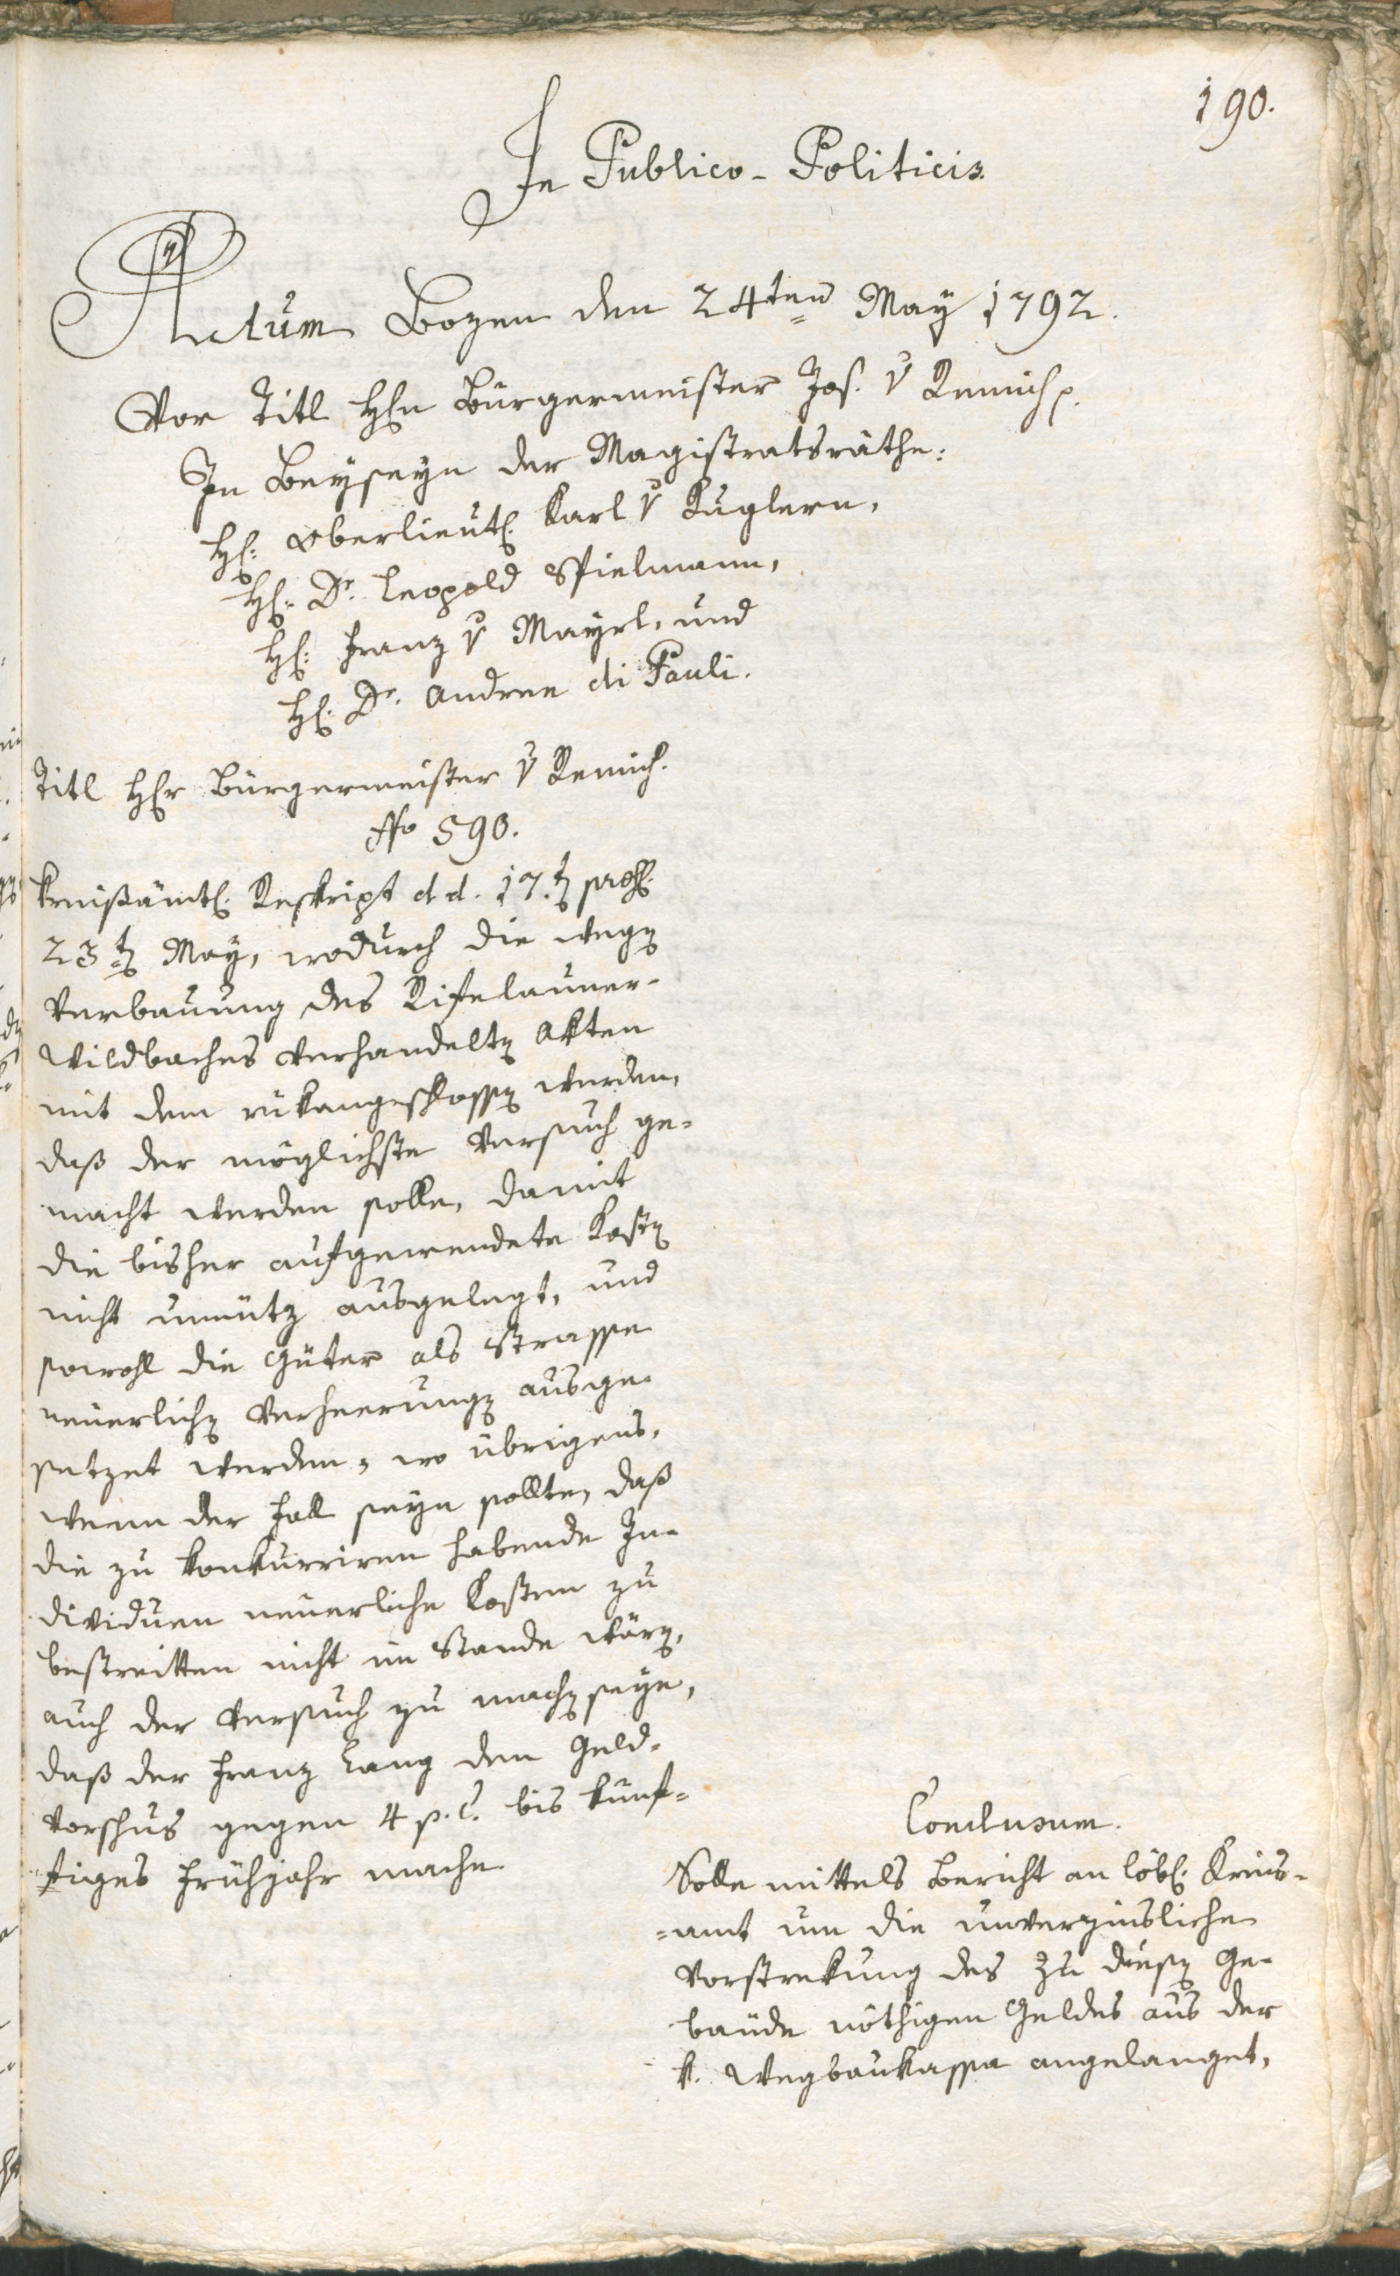 190.
In Publico-Politicis
Actum Bozen den 24ten May 1792.
Vor Titl Hℓn Bürgermeister Jos. v Remich p.
In Beyseyn der Magistratsräthe:
Hℓ: Oberlieutℓ. Karl v Kuglern,
Hℓ: Dr. Leopold Spielmann,
Hℓ: Franz v Mayrl, und
Hℓ. Dr. Andree di Pauli.
Titl Hℓr Bürgermeister v Remich.
No 590.
Kreißämtℓ. Reskript d d. 17.t praes.
23t May, wodurch die wegen
Verbauung des Rifelauner-
Wildbaches verhandelten Akten
mit dem rükangeschlossen werden,
daß der möglichste Versuch ge-
macht werden solle, damit
die bisher aufgewendete Kosten
nicht unnütz ausgelegt, und
sowohl die Güter als Strasse
neuerlichen Verheerungen ausge-
setzet werden, wo übrigens,
wenn der Fall seyn sollte, daß
die zu konkurriren habende In-
dividuen neuerliche Kosten zu
bestreitten nicht im Stande wären,
auch der Versuch zu machen seye,
daß der Franz Lang den Geld-
vorschus gegen 4 p.C. bis künf-
tiges Frühjahr mache.
Conclusum.
Solle mittels Bericht an löbℓ. Kreis-
-amt um die unverzinsliche
Vorstrekung des zu diesen Ge-
bäude nöthigen Geldes aus der
k. Wegbaukassa angelanget,